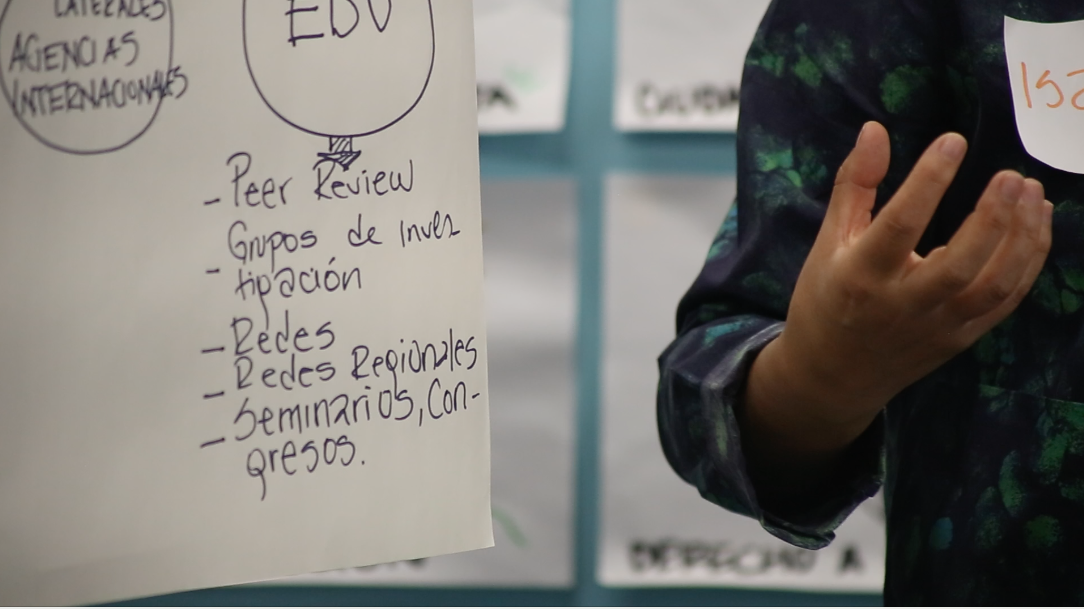 LATERALES
AGENCIAS
INTERNACIONALES
EDU
- Peer Review
- Grupos de inves
tigación
- Redes
- Redes Regionales
- Seminarios, Con-
gresos.
DERECHO A